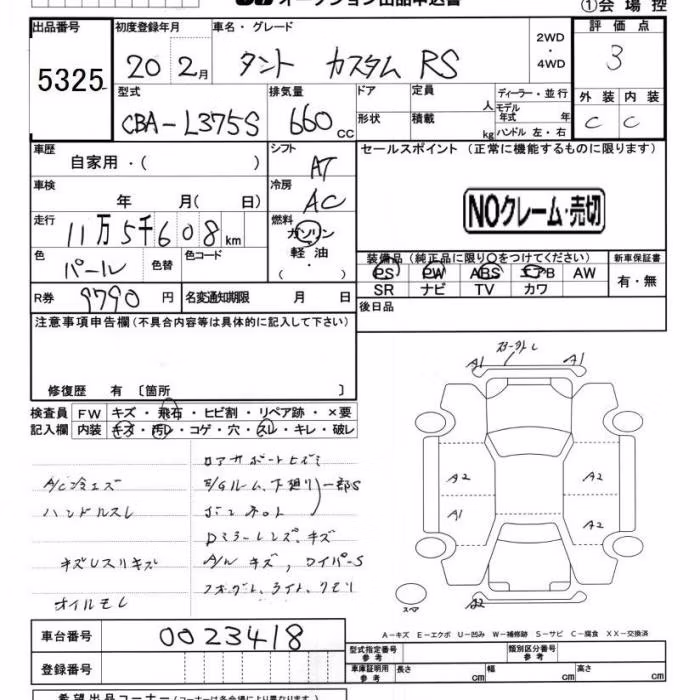 オークション出品申込書
①会場控
出品番号 初度登録年月 車名・グレード 評価点
5325 20 2月 タント カスタム RS 2WD・4WD 3
型式 排気量 ドア 定員 人 ディーラー・並行 外装 内装
CBA-L375S 660cc 形状 積載 kg モデル年式 年 ハンドル 左・右 C C
車歴 自家用・( ) シフト AT セールスポイント (正常に機能するものに限ります)
車検 年 月( 日) 冷房 AC
NOクレーム・売切
走行 11万5千608km 燃料 ガソリン・軽油・( )
色 パール 色替 色コード
装備品 (純正品に限り〇をつけてください) 新車保証書
PS PW ABS エアB AW 有・無
SR ナビ TV カワ
R券 9790円 名変通知期限 月 日
後日品
注意事項申告欄(不具合内容等は具体的に記入して下さい)
修復歴 有 〔箇所 〕
検査員 FW キズ・飛石・ヒビ割・リペア跡・×要
記入欄 内装 キズ・汚レ・コゲ・穴・スレ・キレ・破レ
A/C冷エズ
E/Gルーム、下廻り 一部S
ハンドルスレ
Dミラーレンズ、キズ
A/W キズ, ワイパーS
フォグL、ライト、クモリ
オイルモレ
A1 A1
A2 A2
A1 A2
スペア A2
A-キズ E-エクボ U-凹み W-補修跡 S-サビ C-腐食 XX-交換済
車台番号 0023418
型式指定番号 参考 類別区分番号 参考
登録番号 車庫証明用 参考 長さ cm 幅 cm 高さ cm
希望出品コーナー(コーナーは各会場により異なります)